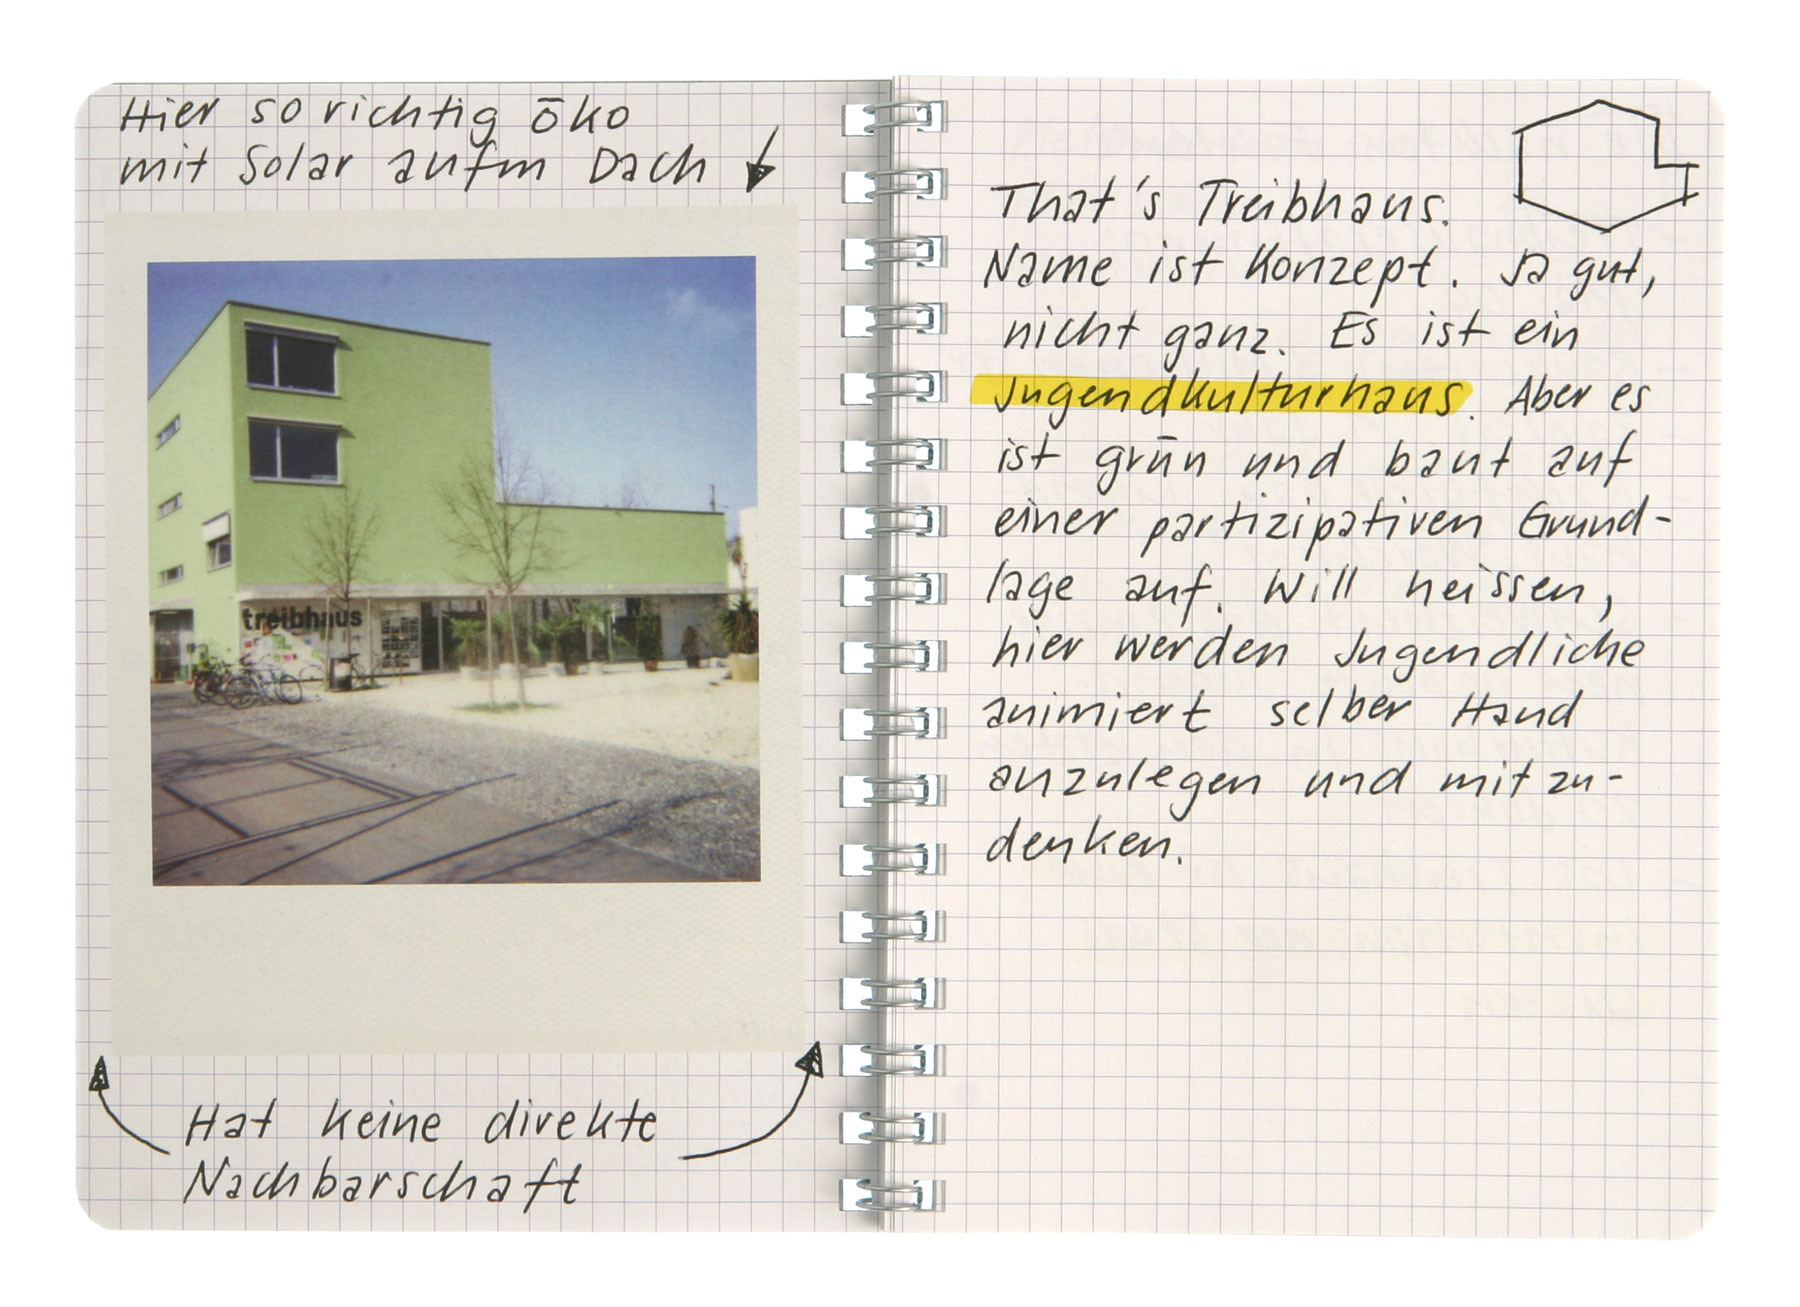 Hier so richtig öko
mit Solar aufm Dach
treibhaus
Hat keine direkte
Nachbarschaft
That's Treibhaus.
Name ist Konzept. Ja gut,
nicht ganz. Es ist ein
Jugendkulturhaus. Aber es
ist grün und baut auf
einer partizipativen Grund-
lage auf. Will heissen,
hier werden Jugendliche
animiert selber Hand
anzulegen und mitzu-
denken.